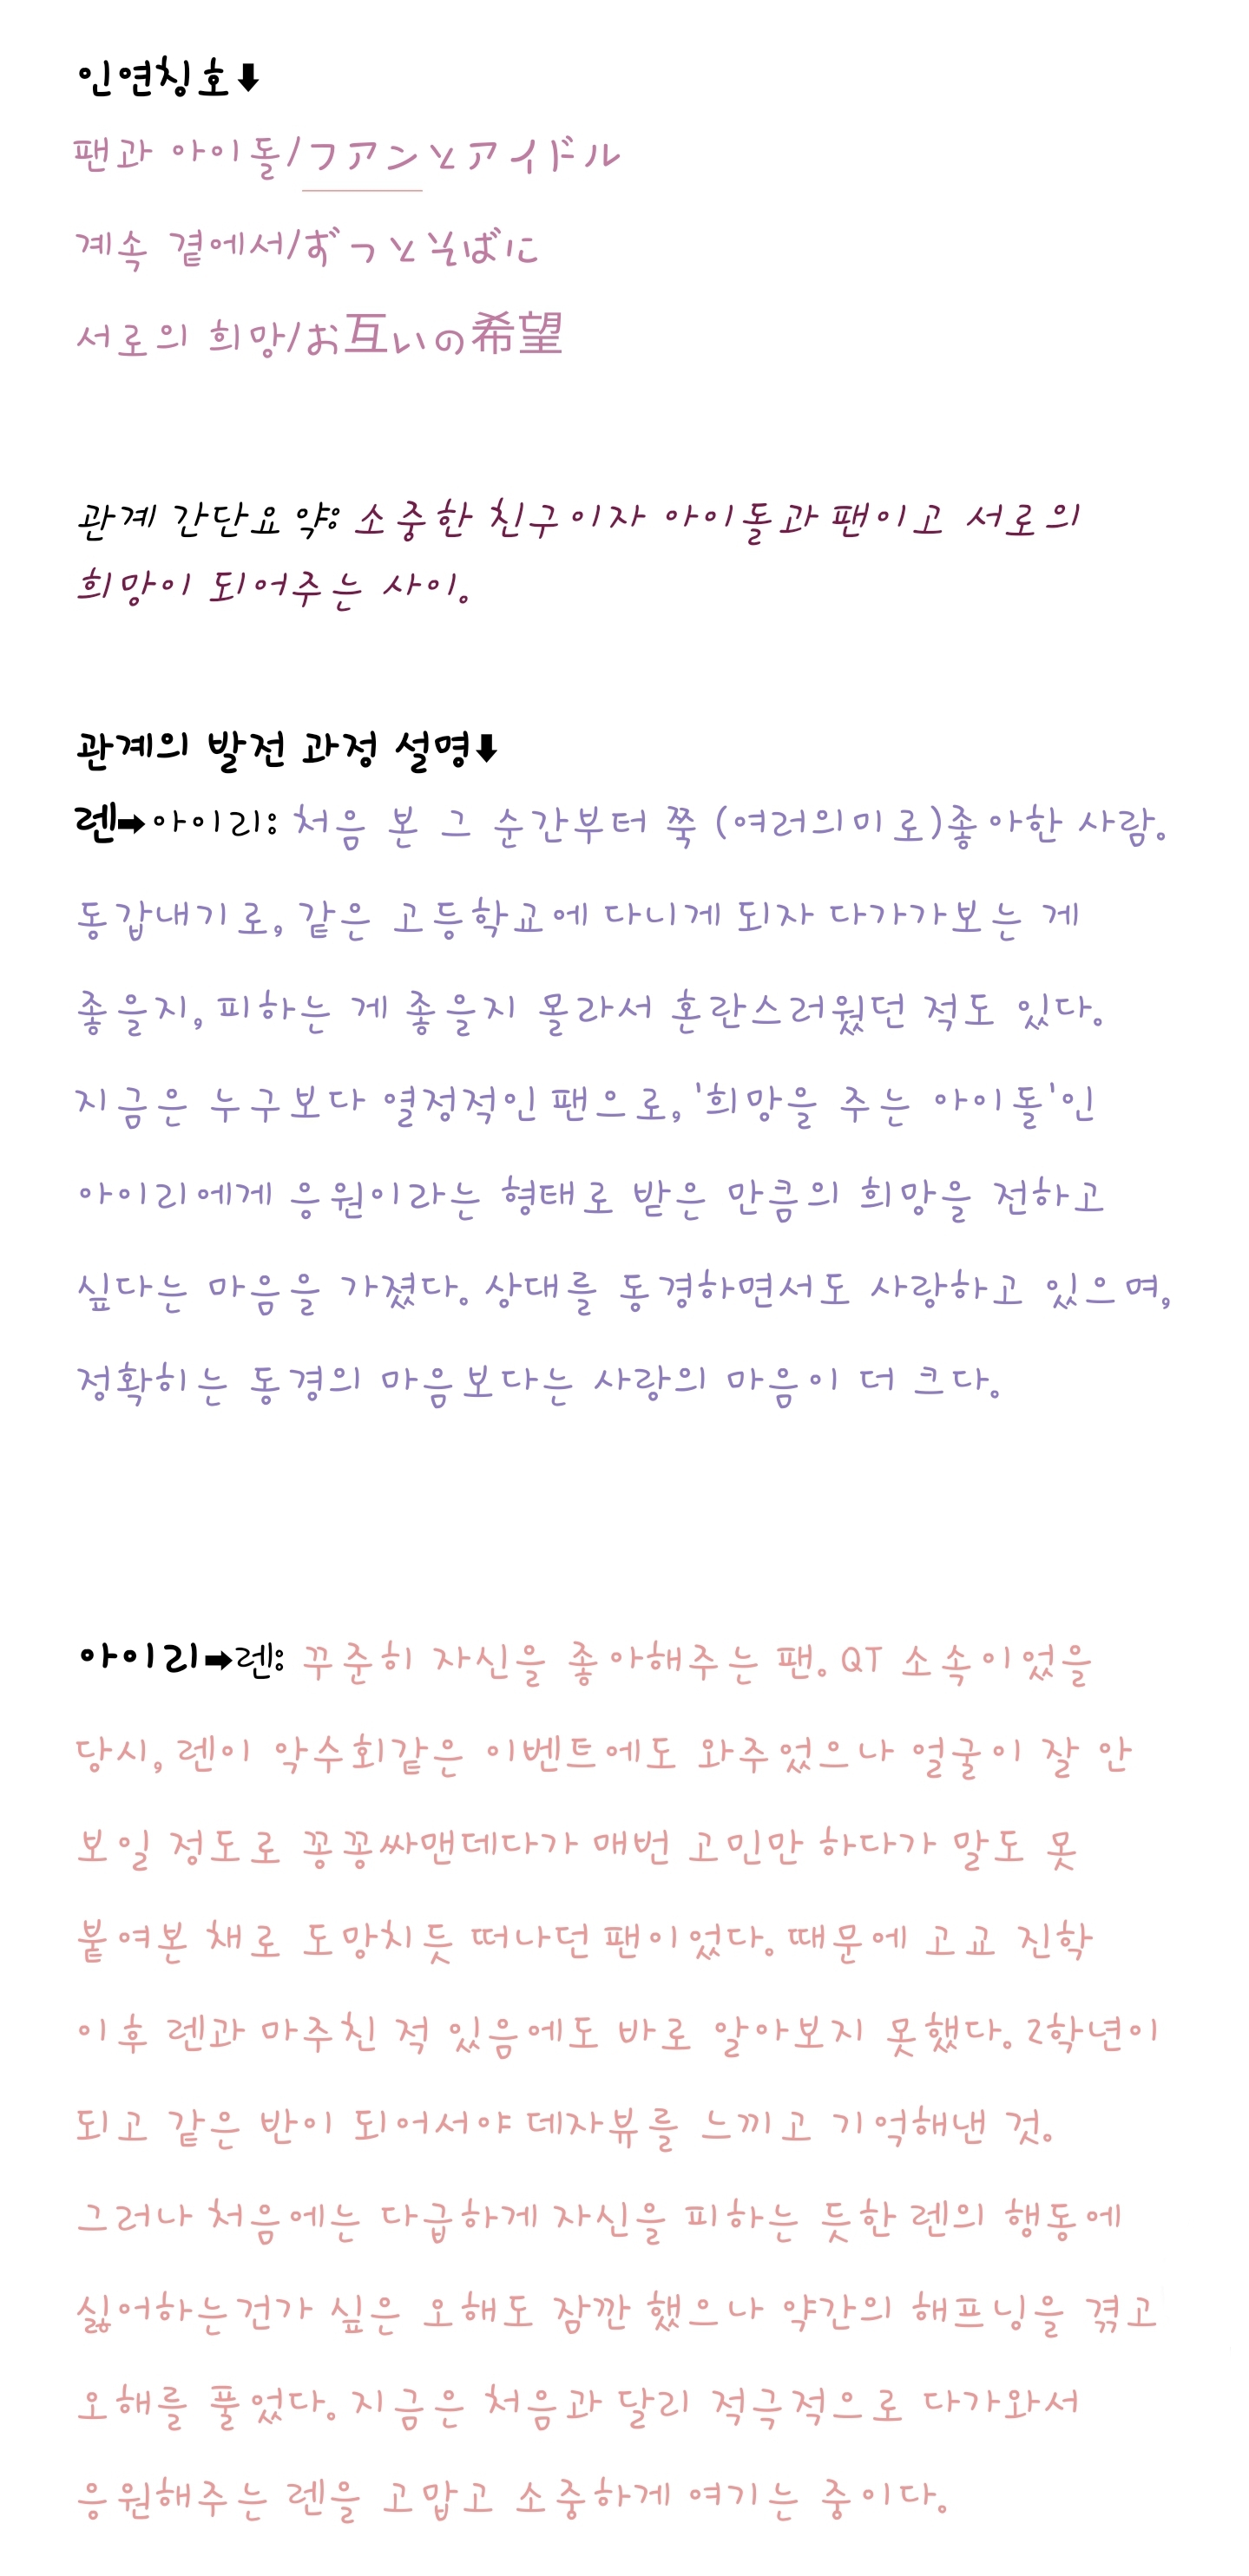 인연칭호⬇
팬과 아이돌/フアンとアイドル
계속 곁에서/ずっとそばに
서로의 희망/お互いの希望
관계 간단요약: 소중한 친구이자 아이돌과 팬이고 서로의
희망이 되어주는 사이.
관계의 발전 과정 설명⬇
렌➡아이리: 처음 본 그 순간부터 쭉 (여러의미로)좋아한 사람.
동갑내기로, 같은 고등학교에 다니게 되자 다가가보는 게
좋을지, 피하는 게 좋을지 몰라서 혼란스러웠던 적도 있다.
지금은 누구보다 열정적인 팬으로, '희망을 주는 아이돌'인
아이리에게 응원이라는 형태로 받은 만큼의 희망을 전하고
싶다는 마음을 가졌다. 상대를 동경하면서도 사랑하고 있으며,
정확히는 동경의 마음보다는 사랑의 마음이 더 크다.
아이리➡렌: 꾸준히 자신을 좋아해주는 팬. QT 소속이었을
당시, 렌이 악수회같은 이벤트에도 와주었으나 얼굴이 잘 안
보일 정도로 꽁꽁싸맨데다가 매번 고민만 하다가 말도 못
붙여본 채로 도망치듯 떠나던 팬이었다. 때문에 고교 진학
이후 렌과 마주친 적 있음에도 바로 알아보지 못했다. 2학년이
되고 같은 반이 되어서야 데자뷰를 느끼고 기억해낸 것.
그러나 처음에는 다급하게 자신을 피하는 듯한 렌의 행동에
싫어하는건가 싶은 오해도 잠깐 했으나 약간의 해프닝을 겪고
오해를 풀었다. 지금은 처음과 달리 적극적으로 다가와서
응원해주는 렌을 고맙고 소중하게 여기는 중이다.